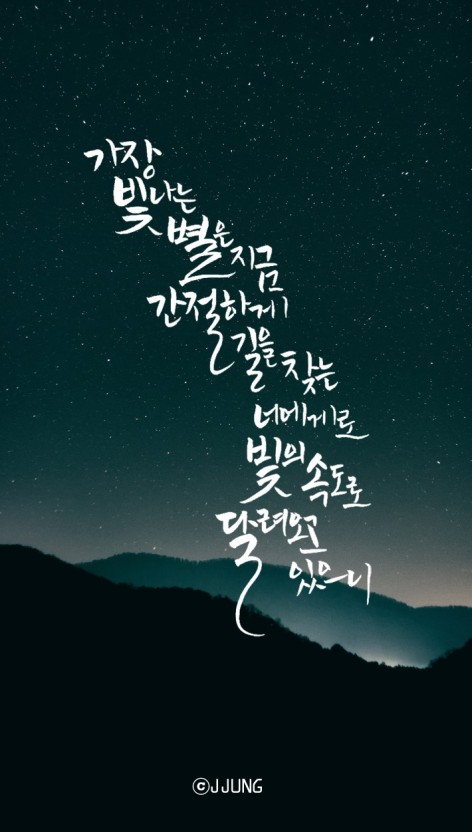 가장
빛나는
별은 지금
간절하게
길을 찾는
너에게로
빛의 속도로
달려오고
있으니
ⓒJJUNG